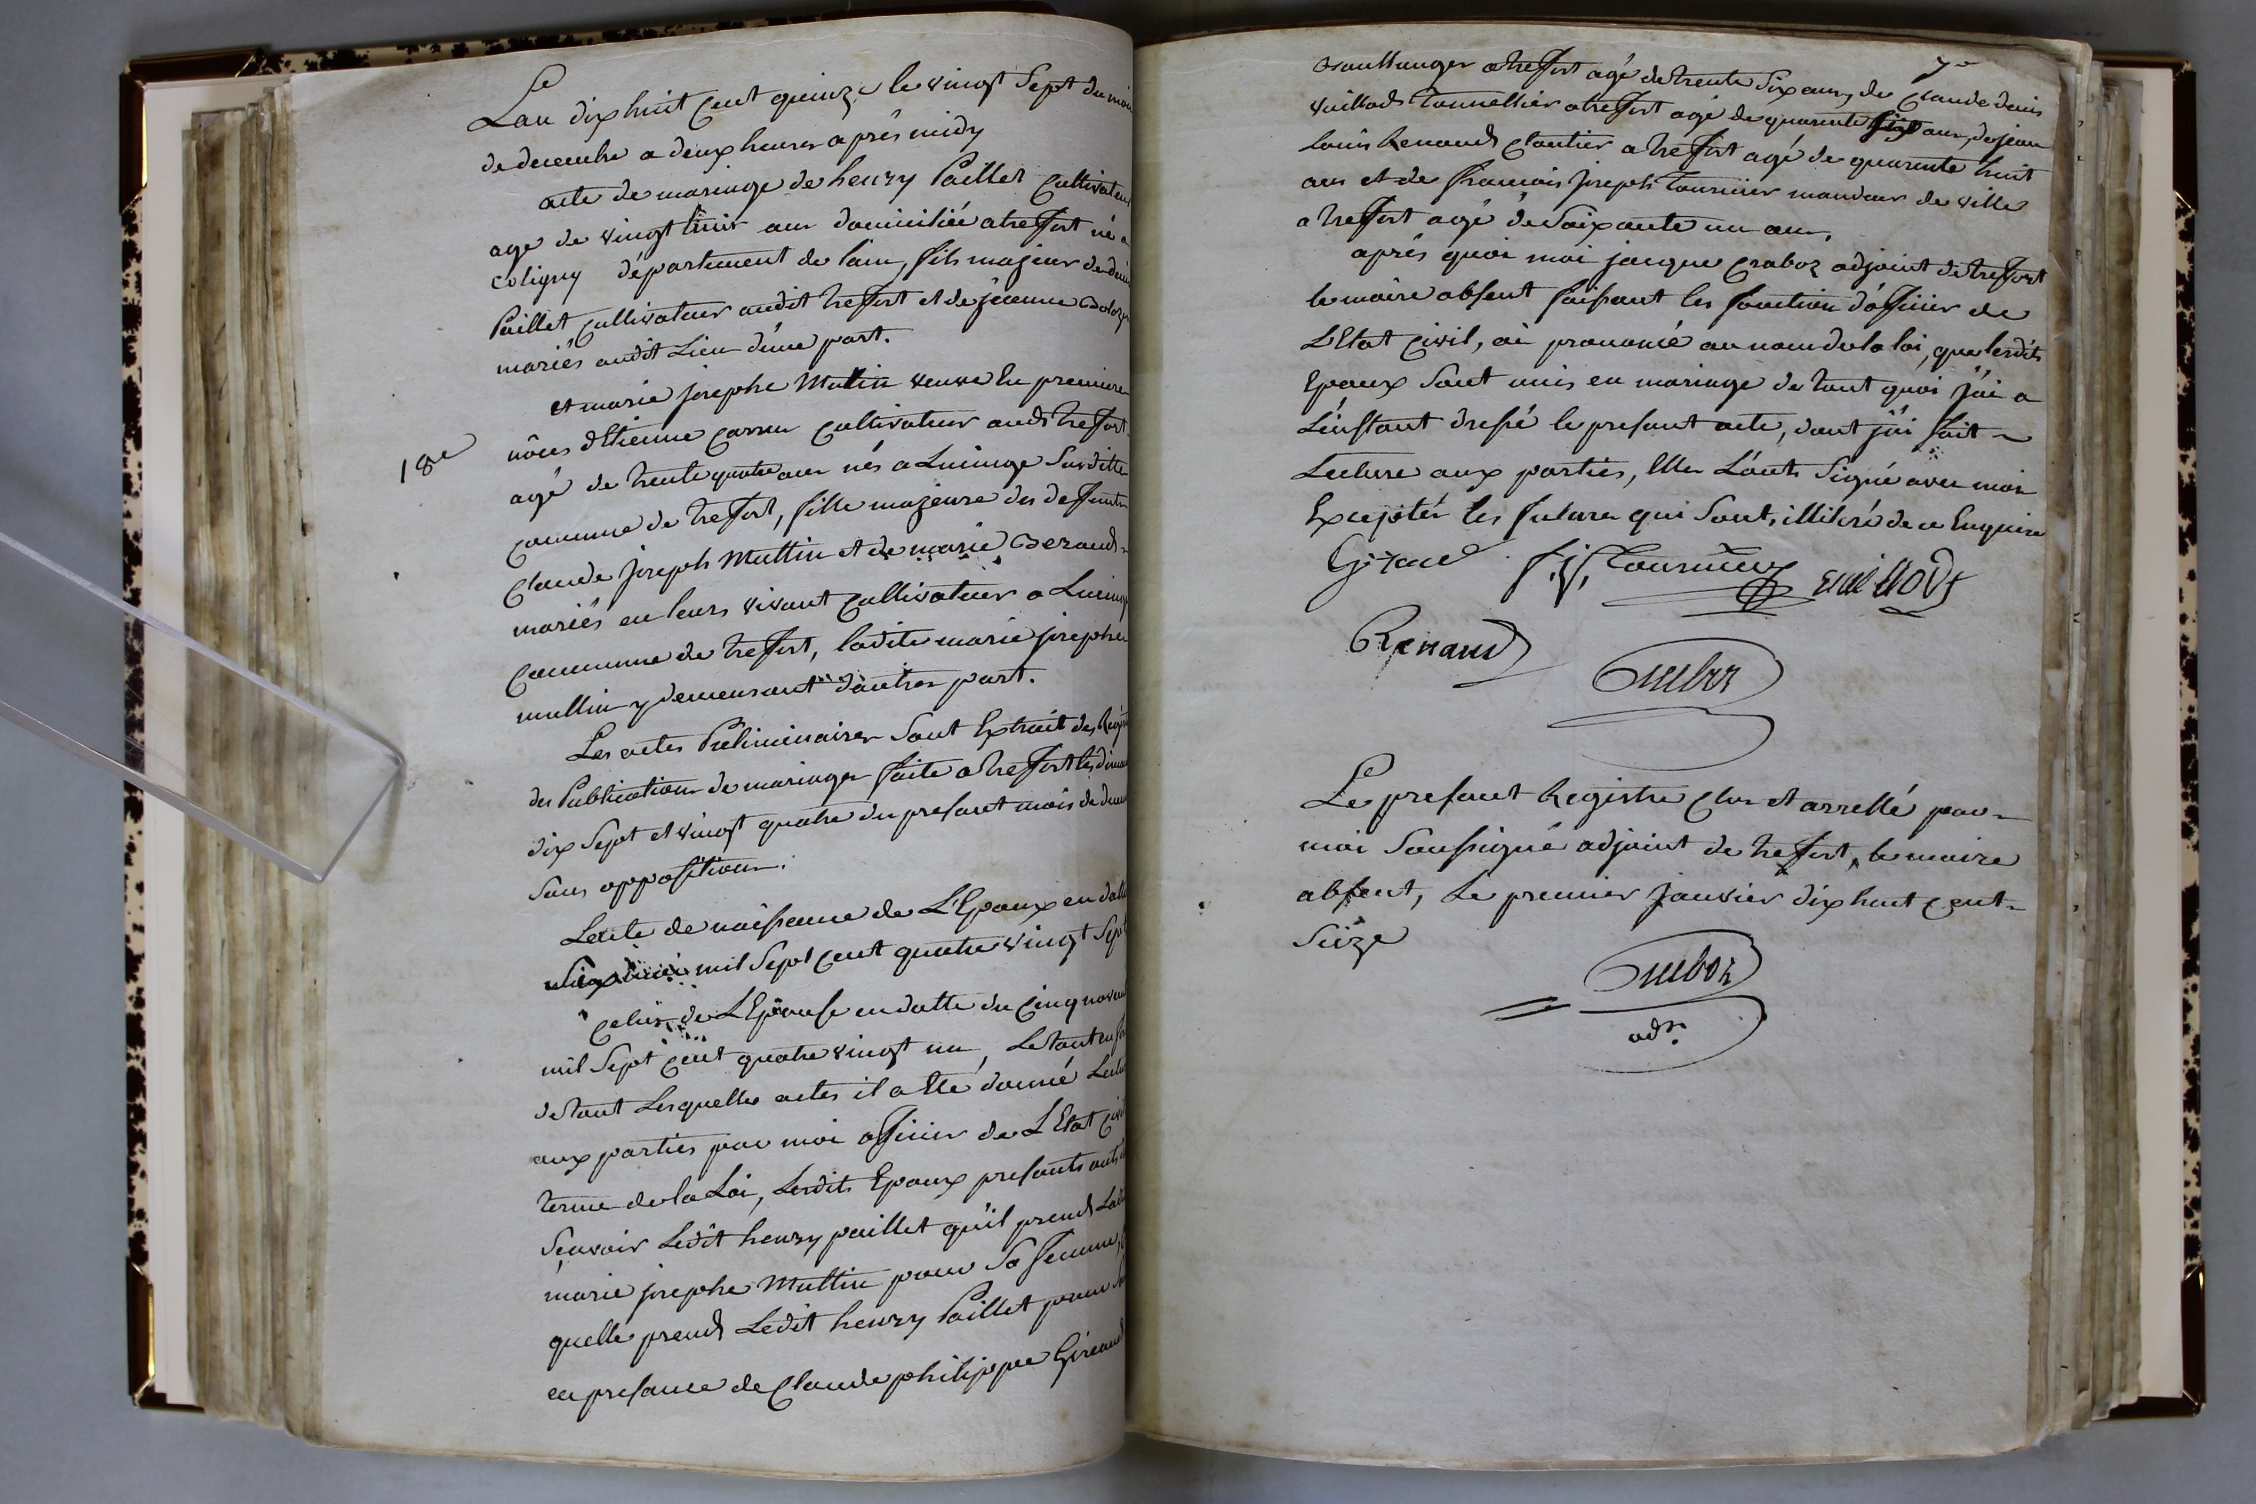 Lan dix huit cent quinze le vingt Sept du mois
de decembre a deux heures aprés midy
acte de mariage de henry Paillet Cultivateur
age de vingt huit ans domiciliée a treffort né a
Coligny département de lain, fils majeur de denis
Paillet Cultivateur audit treffort et de jéanne
mariés audit Lieu d'úne part.
et marie josephe Mullin veuve En premiere
nôces dEtienne Carru Cultivateur audt treffort
18e
agé de trente quatre ans nés a Lucinge Susditte
Commune de treffort, fille majeure des deffunts
Claude joseph Mullin et de marie Beraud
mariés en leurs vivant Cultivateur a Lucinge
Commune de treffort, ladite marie josephe
mullin y demeurant dautres part.
Les actes Préliminaires Sont Extrait des Regis
des Publications de mariages faite a treffort les diman
dix Sept et vingt quatre du presant mois de decem
Sans oppositions.
Lacte de naissance de L'Epoux en datte
mil Sept Cent quatre vingt Sept
Celui de L'Epouse en datte du Cinq novem
mil Sept Cent quatre vingt un, Letout en
detout Lesquelles actes il a Eté donné Lectu
aux parties par moi officier de L'Etat Civil
terme de la Loi, Lesdits Epoux presants ont
Scavoir Ledit henry paillet qu'il prend Ladi
marie josephe Mullin pour Sa femme,
quelle prend Ledit henry Paillet pour
en presance de Claude philippe Giraud
7e
Boullanger a treffort agé de trente Six ans, de Claude denis
vuillods tonnellier a treffort agé de quarente ans, de jean
louis Renaud Cloutier a treffort agé de quarente huit
ans et de francois joseph tournier mandeur de ville
a treffort agé de Soixante un ans.
aprés quoi moi jacque Craboz adjoint de treffort
le maire absent faissant les fonction d'officier de
L'Etat Civil, ai prononcé au nom de la loi, que lesdits
Epoux Sont unis en mariage de tout quoi j'ai a
L'instant dressé le presant acte, dont j'ai fait
Lecture aux parties, Elles L'ont Signé avec moi
Exceptér les futures qui Sont illitéré de ce Enquire
Giraud F. J. Tournier vuillods
Renaud
Craboz
Le presant Registre Clos et arretté par
moi Soussigné adjoint de treffort, le maire
absent, Le premier janvier dix huit Cent
Seize
Craboz
adt.